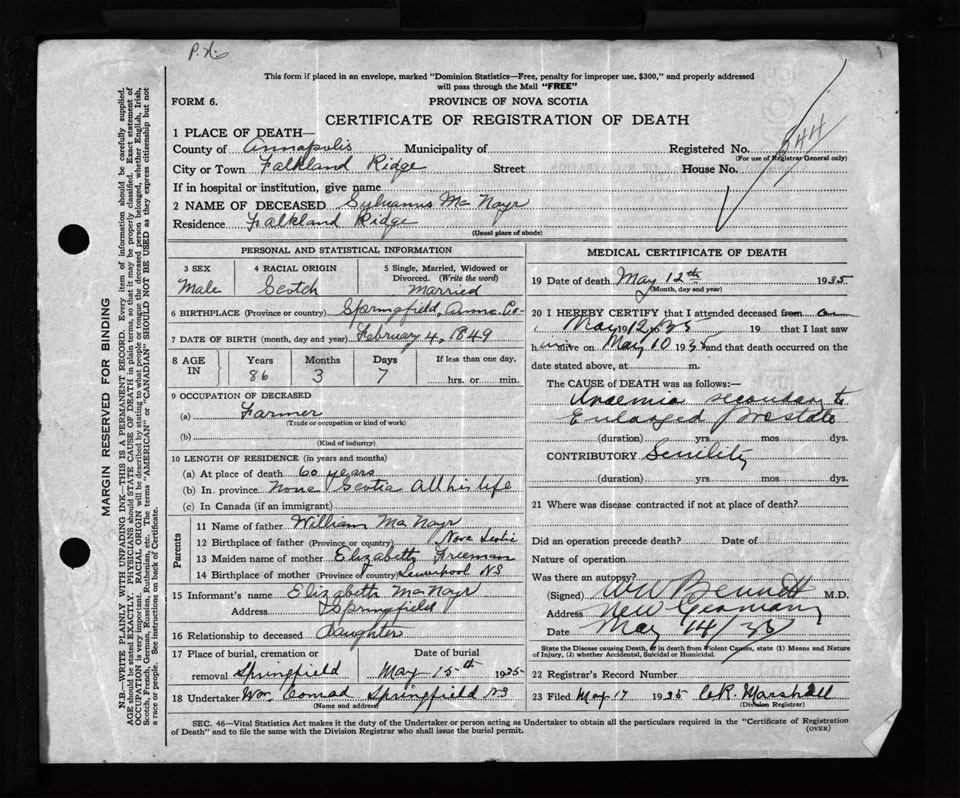 P.X.
This form if placed in an envelope, marked "Dominion Statistics—Free, penalty for improper use, $300," and properly addressed
will pass through the Mail "FREE"
FORM 6.
PROVINCE OF NOVA SCOTIA
CERTIFICATE OF REGISTRATION OF DEATH
1 PLACE OF DEATH—
County of Annapolis Municipality of Registered No. 544
(For use of Registrar General only)
City or Town Falkland Ridge Street House No.
If in hospital or institution, give name
2 NAME OF DECEASED Sylvanus Mc Nayr
Residence Falkland Ridge
(Usual place of abode)
PERSONAL AND STATISTICAL INFORMATION
3 SEX 4 RACIAL ORIGIN 5 Single, Married, Widowed or
Divorced. (Write the word)
Male Scotch Married
6 BIRTHPLACE (Province or country) Springfield, Anna. Co.
7 DATE OF BIRTH (month, day and year) February 4, 1849
8 AGE IN Years Months Days If less than one day,
86 3 7 hrs. or min.
9 OCCUPATION OF DECEASED
(a) Farmer
(Trade or occupation or kind of work)
(b)
(Kind of industry)
10 LENGTH OF RESIDENCE (in years and months)
(a) At place of death 60 years
(b) In province Nova Scotia All his life
(c) In Canada (if an immigrant)
Parents
11 Name of father William Mc Nayr
12 Birthplace of father (Province or country) Nova Scotia
13 Maiden name of mother Elizabeth Freeman
14 Birthplace of mother (Province of country) Liverpool NS
15 Informant's name Elizabeth McNayr
Address Springfield
16 Relationship to deceased Daughter
17 Place of burial, cremation or Date of burial
removal Springfield May 15th 1935
18 Undertaker Wm. Conrad Springfield NS
(Name and address)
MEDICAL CERTIFICATE OF DEATH
19 Date of death May 12th 1935
(Month, day and year)
20 I HEREBY CERTIFY that I attended deceased from on
May 1912, 1935 19 that I last saw
h alive on May 10 1935 and that death occurred on the
date stated above, at m.
The CAUSE OF DEATH was as follows:—
Uraemia secondary to
Enlarged prostate
(duration) yrs. mos. dys.
CONTRIBUTORY Senility
(duration) yrs. mos. dys.
21 Where was disease contracted if not at place of death?
Did an operation precede death? Date of
Nature of operation
Was there an autopsy?
(Signed) W W Bennett M.D.
Address New Germany
Date May 14/35
State the Disease causing Death, or in death from Violent Causes, state (1) Means and Nature
of Injury, (2) whether Accidental, Suicidal or Homicidal.
22 Registrar's Record Number
23 Filed May 17 1935 C.R. Marshall
(Division Registrar)
SEC. 46—Vital Statistics Act makes it the duty of the Undertaker or person acting as Undertaker to obtain all the particulars required in the "Certificate of Registration
of Death" and to file the same with the Division Registrar who shall issue the burial permit.
(OVER)
MARGIN RESERVED FOR BINDING
N.B.—WRITE PLAINLY WITH UNFADING INK—THIS IS A PERMANENT RECORD. Every item of information should be carefully supplied.
AGE should be stated EXACTLY. PHYSICIANS should STATE CAUSE OF DEATH in plain terms, so that it may be properly classified. Exact statement of
OCCUPATION is very important. RACIAL ORIGIN will be described by stating to what people or tongue the deceased person belonged, whether English, Irish,
Scotch, French, German, Russian, Ruthenian, etc. The terms "AMERICAN" or "CANADIAN" SHOULD NOT BE USED as they express citizenship but not
a race or people. See instructions on back of Certificate.